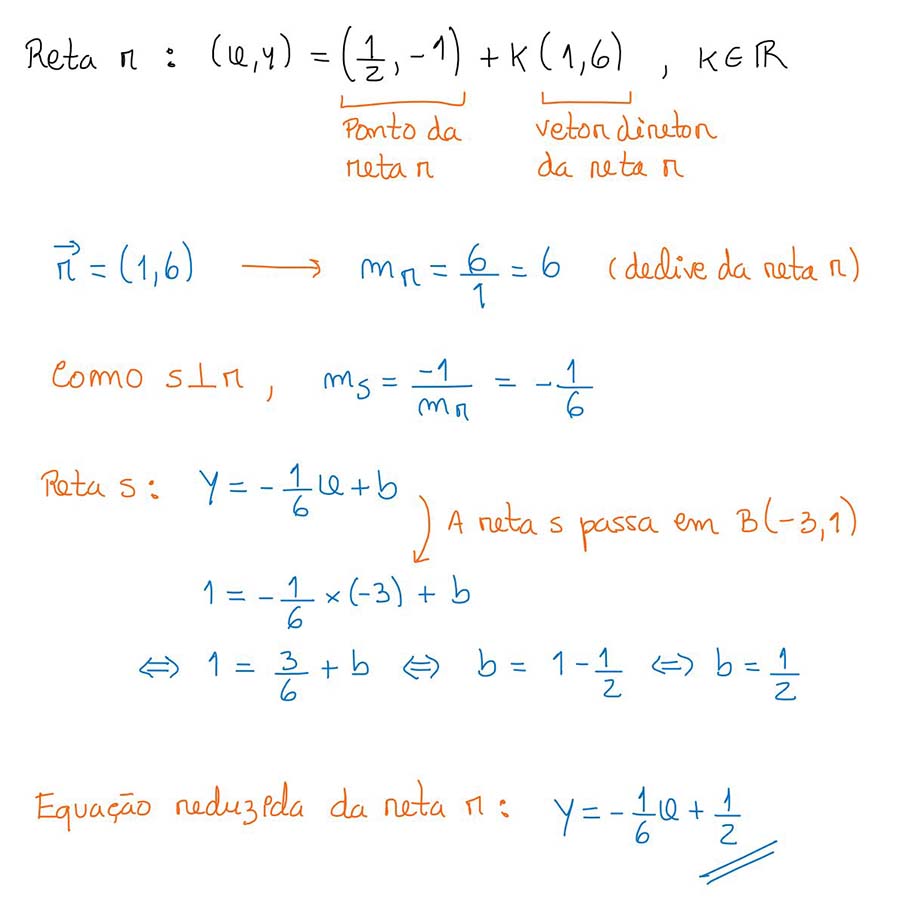 Reta r : (x,y) = (1/2, -1) + K(1,6) , K∈ℝ
Ponto da reta r
vetor diretor da reta r
r⃗ = (1,6) → m_r = 6/1 = 6 (declive da reta r)
Como s⊥r , m_s = -1/m_r = -1/6
Reta s: Y = -1/6 x + b
A reta s passa em B(-3,1)
1 = -1/6 × (-3) + b
⇔ 1 = 3/6 + b ⇔ b = 1 - 1/2 ⇔ b = 1/2
Equação reduzida da reta r: Y = -1/6 x + 1/2